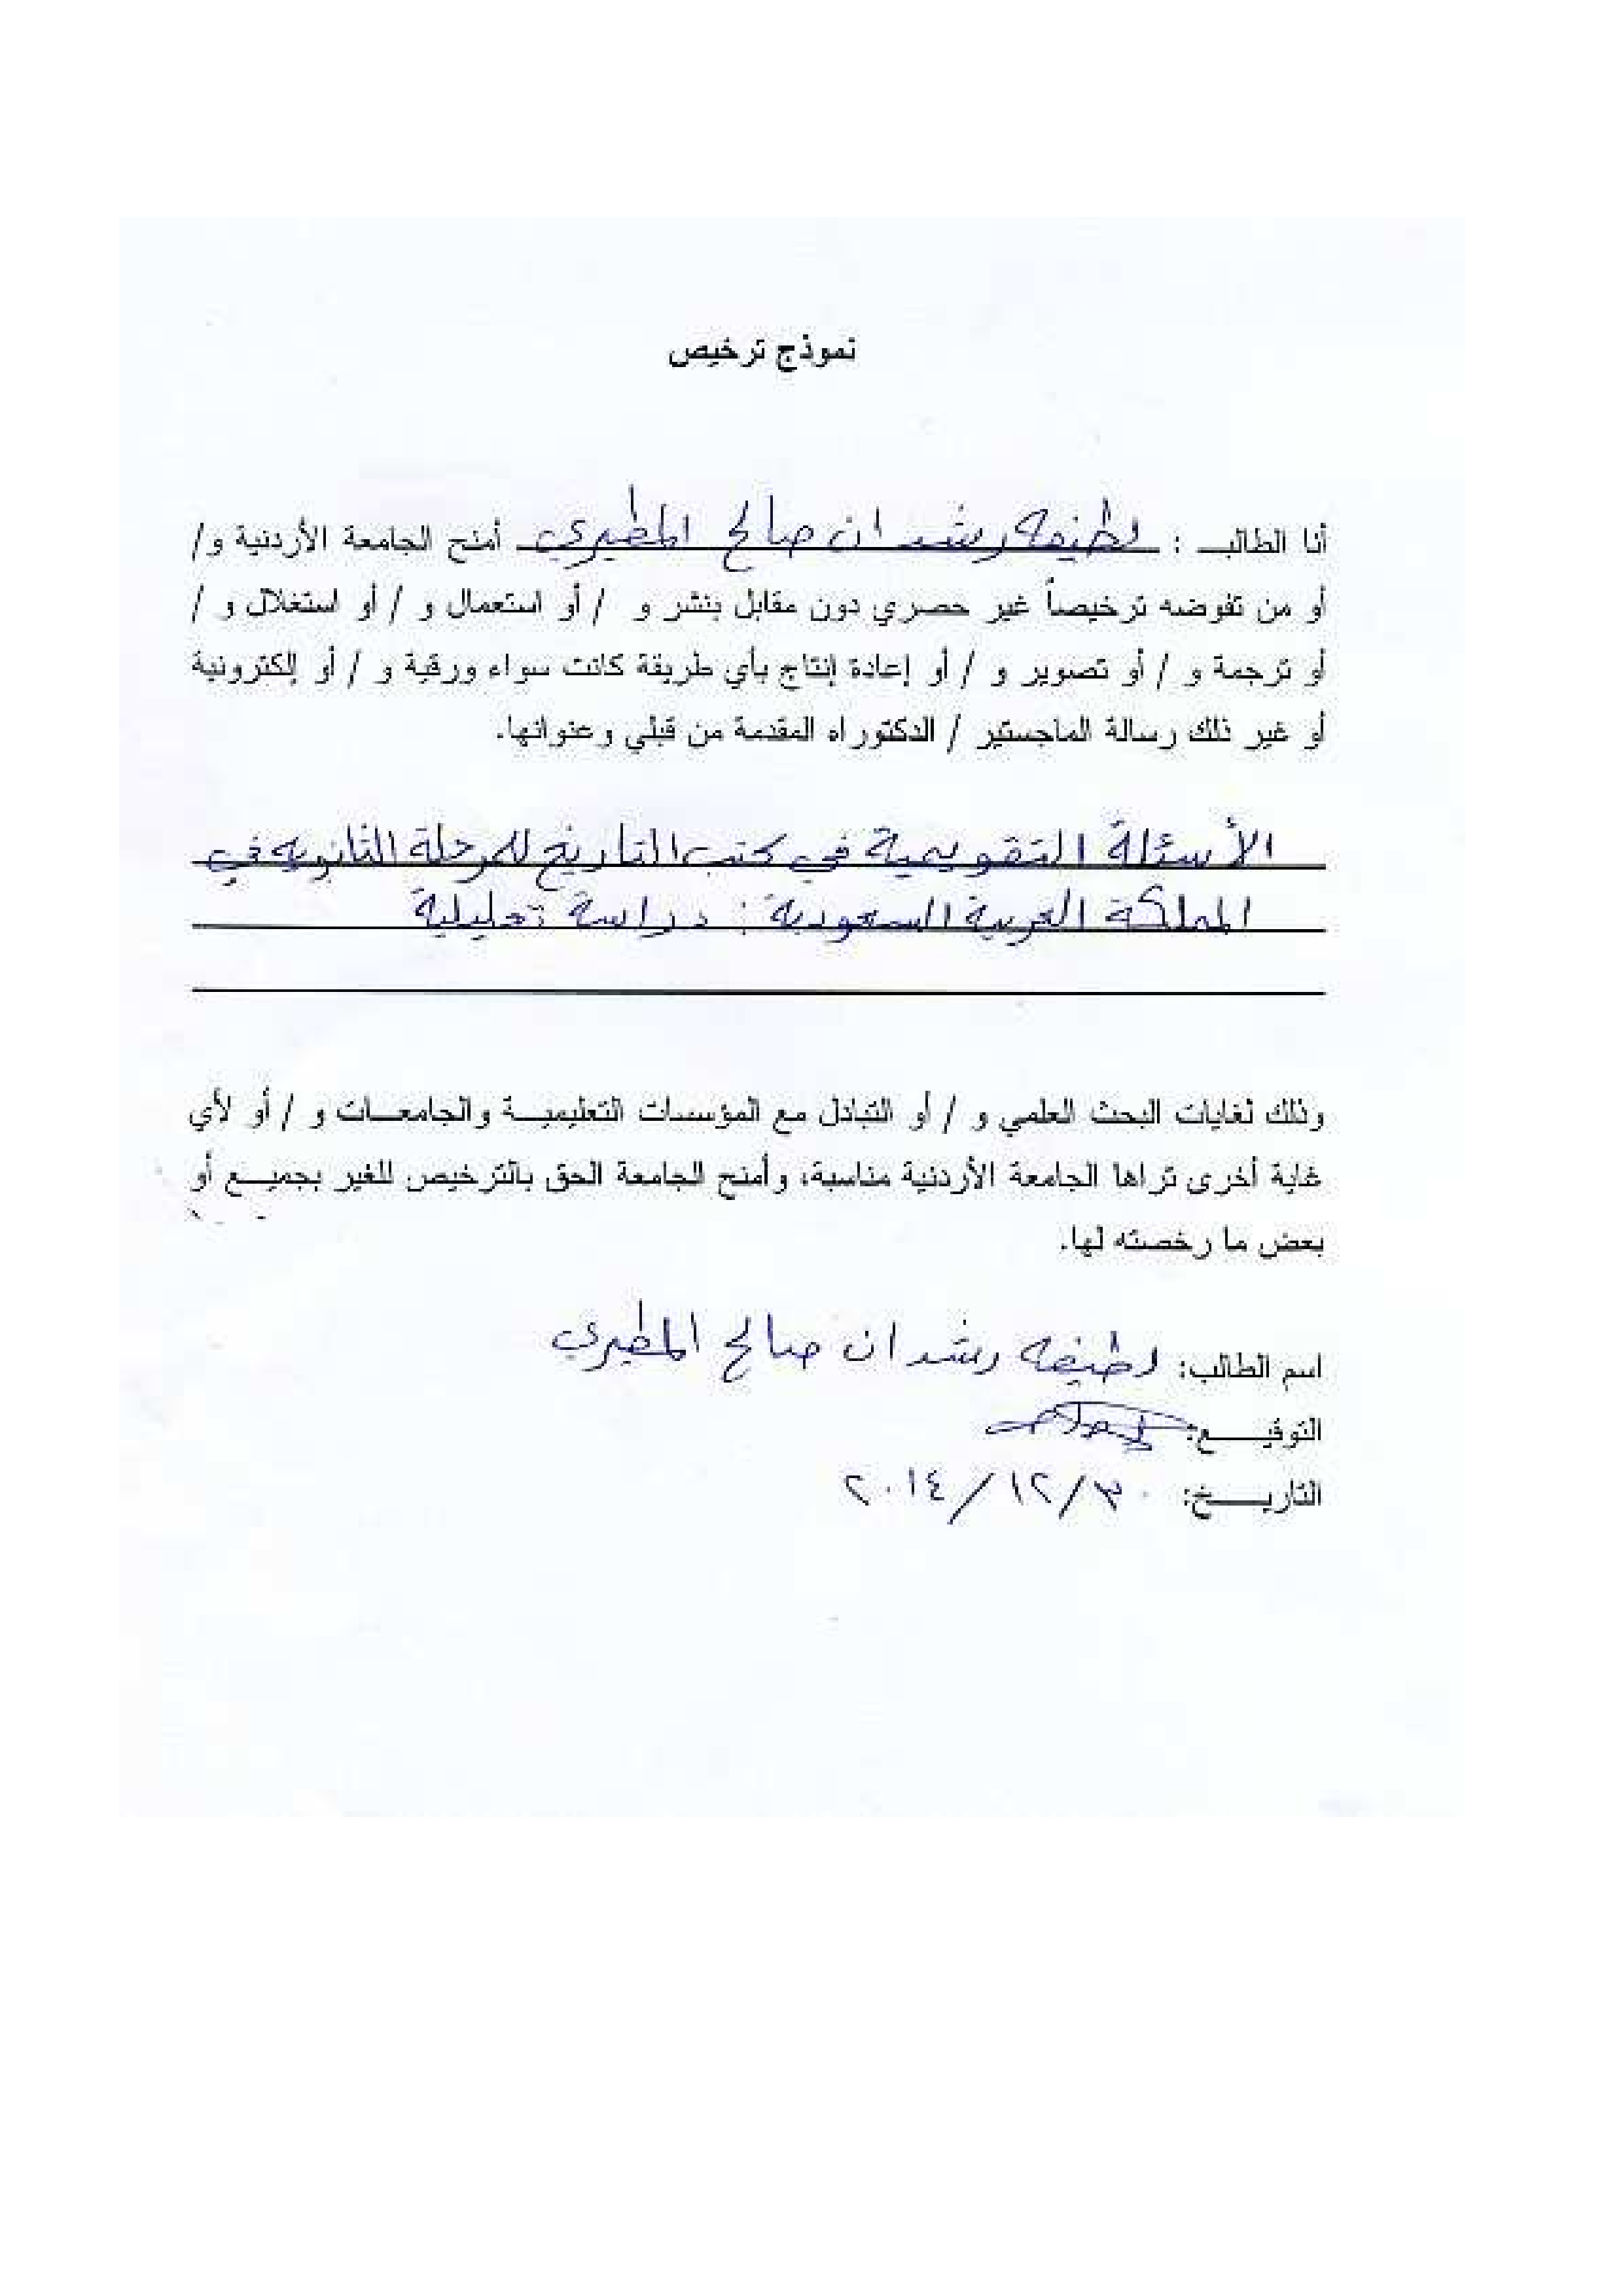 نموذج ترخيص
أنا الطالب : لطيفه رشدان صالح المطيري أمنح الجامعة الأردنية و/
أو من تفوضه ترخيصاً غير حصري دون مقابل بنشر و / أو استعمال و / أو استغلال و /
أو ترجمة و / أو تصوير و / أو إعادة إنتاج بأي طريقة كانت سواء ورقية و / أو إلكترونية
أو غير ذلك رسالة الماجستير / الدكتوراه المقدمة من قبلي وعنوانها.
الأسئلة التقويمية في كتب التاريخ للمرحلة الثانويه في
المملكة العربية السعودية : دراسة تحليلية
وذلك لغايات البحث العلمي و / أو التبادل مع المؤسسات التعليمية والجامعات و / أو لأي
غاية أخرى تراها الجامعة الأردنية مناسبة، وأمنح الجامعة الحق بالترخيص للغير بجميع أو
بعض ما رخصته لها.
اسم الطالب: لطيفه رشدان صالح المطيري
التوقيع:
التاريخ: ٣٠/١٢/٢٠١٤